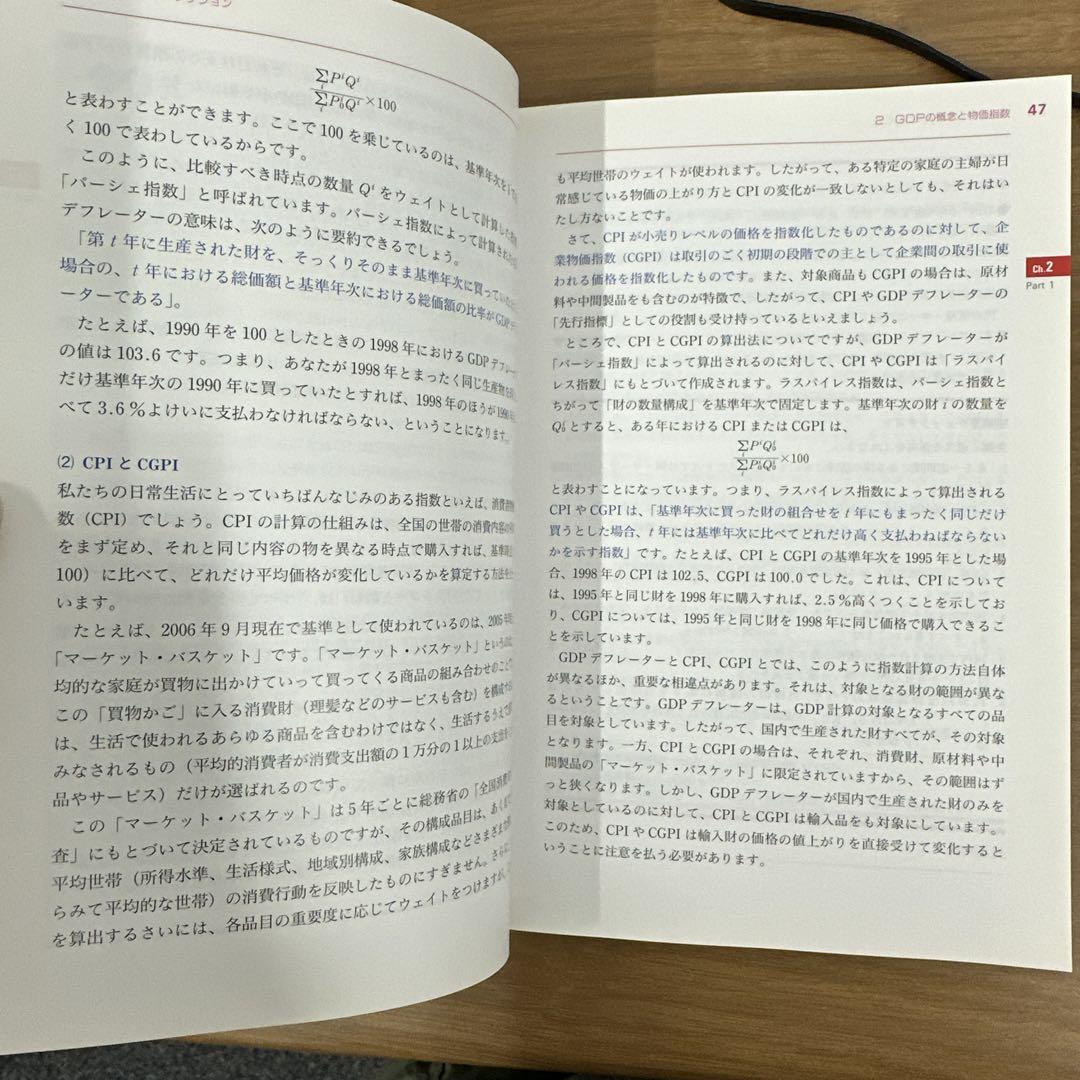 クション
ΣPⁱQⁱ
i
ΣP₀ⁱQⁱ ×100
i
と表わすことができます。ここで 100 を乗じているのは、基準年次を
く 100 で表わしているからです。
このように、比較すべき時点の数量 Qⁱ をウェイトとして計算した
「パーシェ指数」と呼ばれています。パーシェ指数によって計算された
デフレーターの意味は、次のように要約できるでしょう。
「第 t 年に生産された財を、そっくりそのまま基準年次に買っていた
場合の、t 年における総価額と基準年次における総価額の比率が GDP デ
ーターである」。
たとえば、1990 年を 100 としたときの 1998 年における GDP デフレー
の値は 103.6 です。つまり、あなたが 1998 年とまったく同じ生産物を
だけ基準年次の 1990 年に買っていたとすれば、1998 年のほうが 1990
べて 3.6 %よけいに支払わなければならない、ということになります。
(2) CPI と CGPI
私たちの日常生活にとっていちばんなじみのある指数といえば、消費
数（CPI）でしょう。CPI の計算の仕組みは、全国の世帯の消費内容の
をまず定め、それと同じ内容の物を異なる時点で購入すれば、基準
100）に比べて、どれだけ平均価格が変化しているかを算定する方法を
います。
たとえば、2006 年 9 月現在で基準として使われているのは、2005 年
「マーケット・バスケット」です。「マーケット・バスケット」という
均的な家庭が買物に出かけていって買ってくる商品の組み合わせのこと
この「買物かご」に入る消費財（理髪などのサービスも含む）を構成
は、生活で使われるあらゆる商品を含むわけではなく、生活するうえで
みなされるもの（平均的消費者が消費支出額の 1 万分の 1 以上の支出を
品やサービス）だけが選ばれるのです。
この「マーケット・バスケット」は 5 年ごとに総務省の「全国消費
査」にもとづいて決定されているものですが、その構成品目は、あくまで
平均世帯（所得水準、生活様式、地域別構成、家族構成などさまざまな
らみて平均的な世帯）の消費行動を反映したものにすぎません。さらに、
を算出するさいには、各品目の重要度に応じてウェイトをつけますが、
2 GDPの概念と物価指数 47
も平均世帯のウェイトが使われます。したがって、ある特定の家庭の主婦が日
常感じている物価の上がり方と CPI の変化が一致しないとしても、それはい
たし方ないことです。
さて、CPI が小売りレベルの価格を指数化したものであるのに対して、企
業物価指数（CGPI）は取引のごく初期の段階での主として企業間の取引に使
われる価格を指数化したものです。また、対象商品も CGPI の場合は、原材
料や中間製品をも含むのが特徴で、したがって、CPI や GDP デフレーターの
「先行指標」としての役割も受け持っているといえましょう。
ところで、CPI と CGPI の算出法についてですが、GDP デフレーターが
「パーシェ指数」によって算出されるのに対して、CPI や CGPI は「ラスパイ
レス指数」にもとづいて作成されます。ラスパイレス指数は、パーシェ指数と
ちがって「財の数量構成」を基準年次で固定します。基準年次の財 i の数量を
Q₀ⁱ とすると、ある年における CPI または CGPI は、
ΣPⁱQ₀ⁱ
i
ΣP₀ⁱQ₀ⁱ ×100
i
と表わすことになっています。つまり、ラスパイレス指数によって算出される
CPI や CGPI は、「基準年次に買った財の組合せを t 年にもまったく同じだけ
買うとした場合、t 年には基準年次に比べてどれだけ高く支払わねばならない
かを示す指数」です。たとえば、CPI と CGPI の基準年次を 1995 年とした場
合、1998 年の CPI は 102.5、CGPI は 100.0 でした。これは、CPI について
は、1995 年と同じ財を 1998 年に購入すれば、2.5 %高くつくことを示してお
り、CGPI については、1995 年と同じ財を 1998 年に同じ価格で購入できるこ
とを示しています。
GDP デフレーターと CPI、CGPI とでは、このように指数計算の方法自体
が異なるほか、重要な相違点があります。それは、対象となる財の範囲が異な
るということです。GDP デフレーターは、GDP 計算の対象となるすべての品
目を対象としています。したがって、国内で生産された財すべてが、その対象
となります。一方、CPI と CGPI の場合は、それぞれ、消費財、原材料や中
間製品の「マーケット・バスケット」に限定されていますから、その範囲はず
っと狭くなります。しかし、GDP デフレーターが国内で生産された財のみを
対象としているのに対して、CPI と CGPI は輸入品をも対象にしています。
このため、CPI や CGPI は輸入財の価格の値上がりを直接受けて変化すると
いうことに注意を払う必要があります。
Ch.2
Part 1